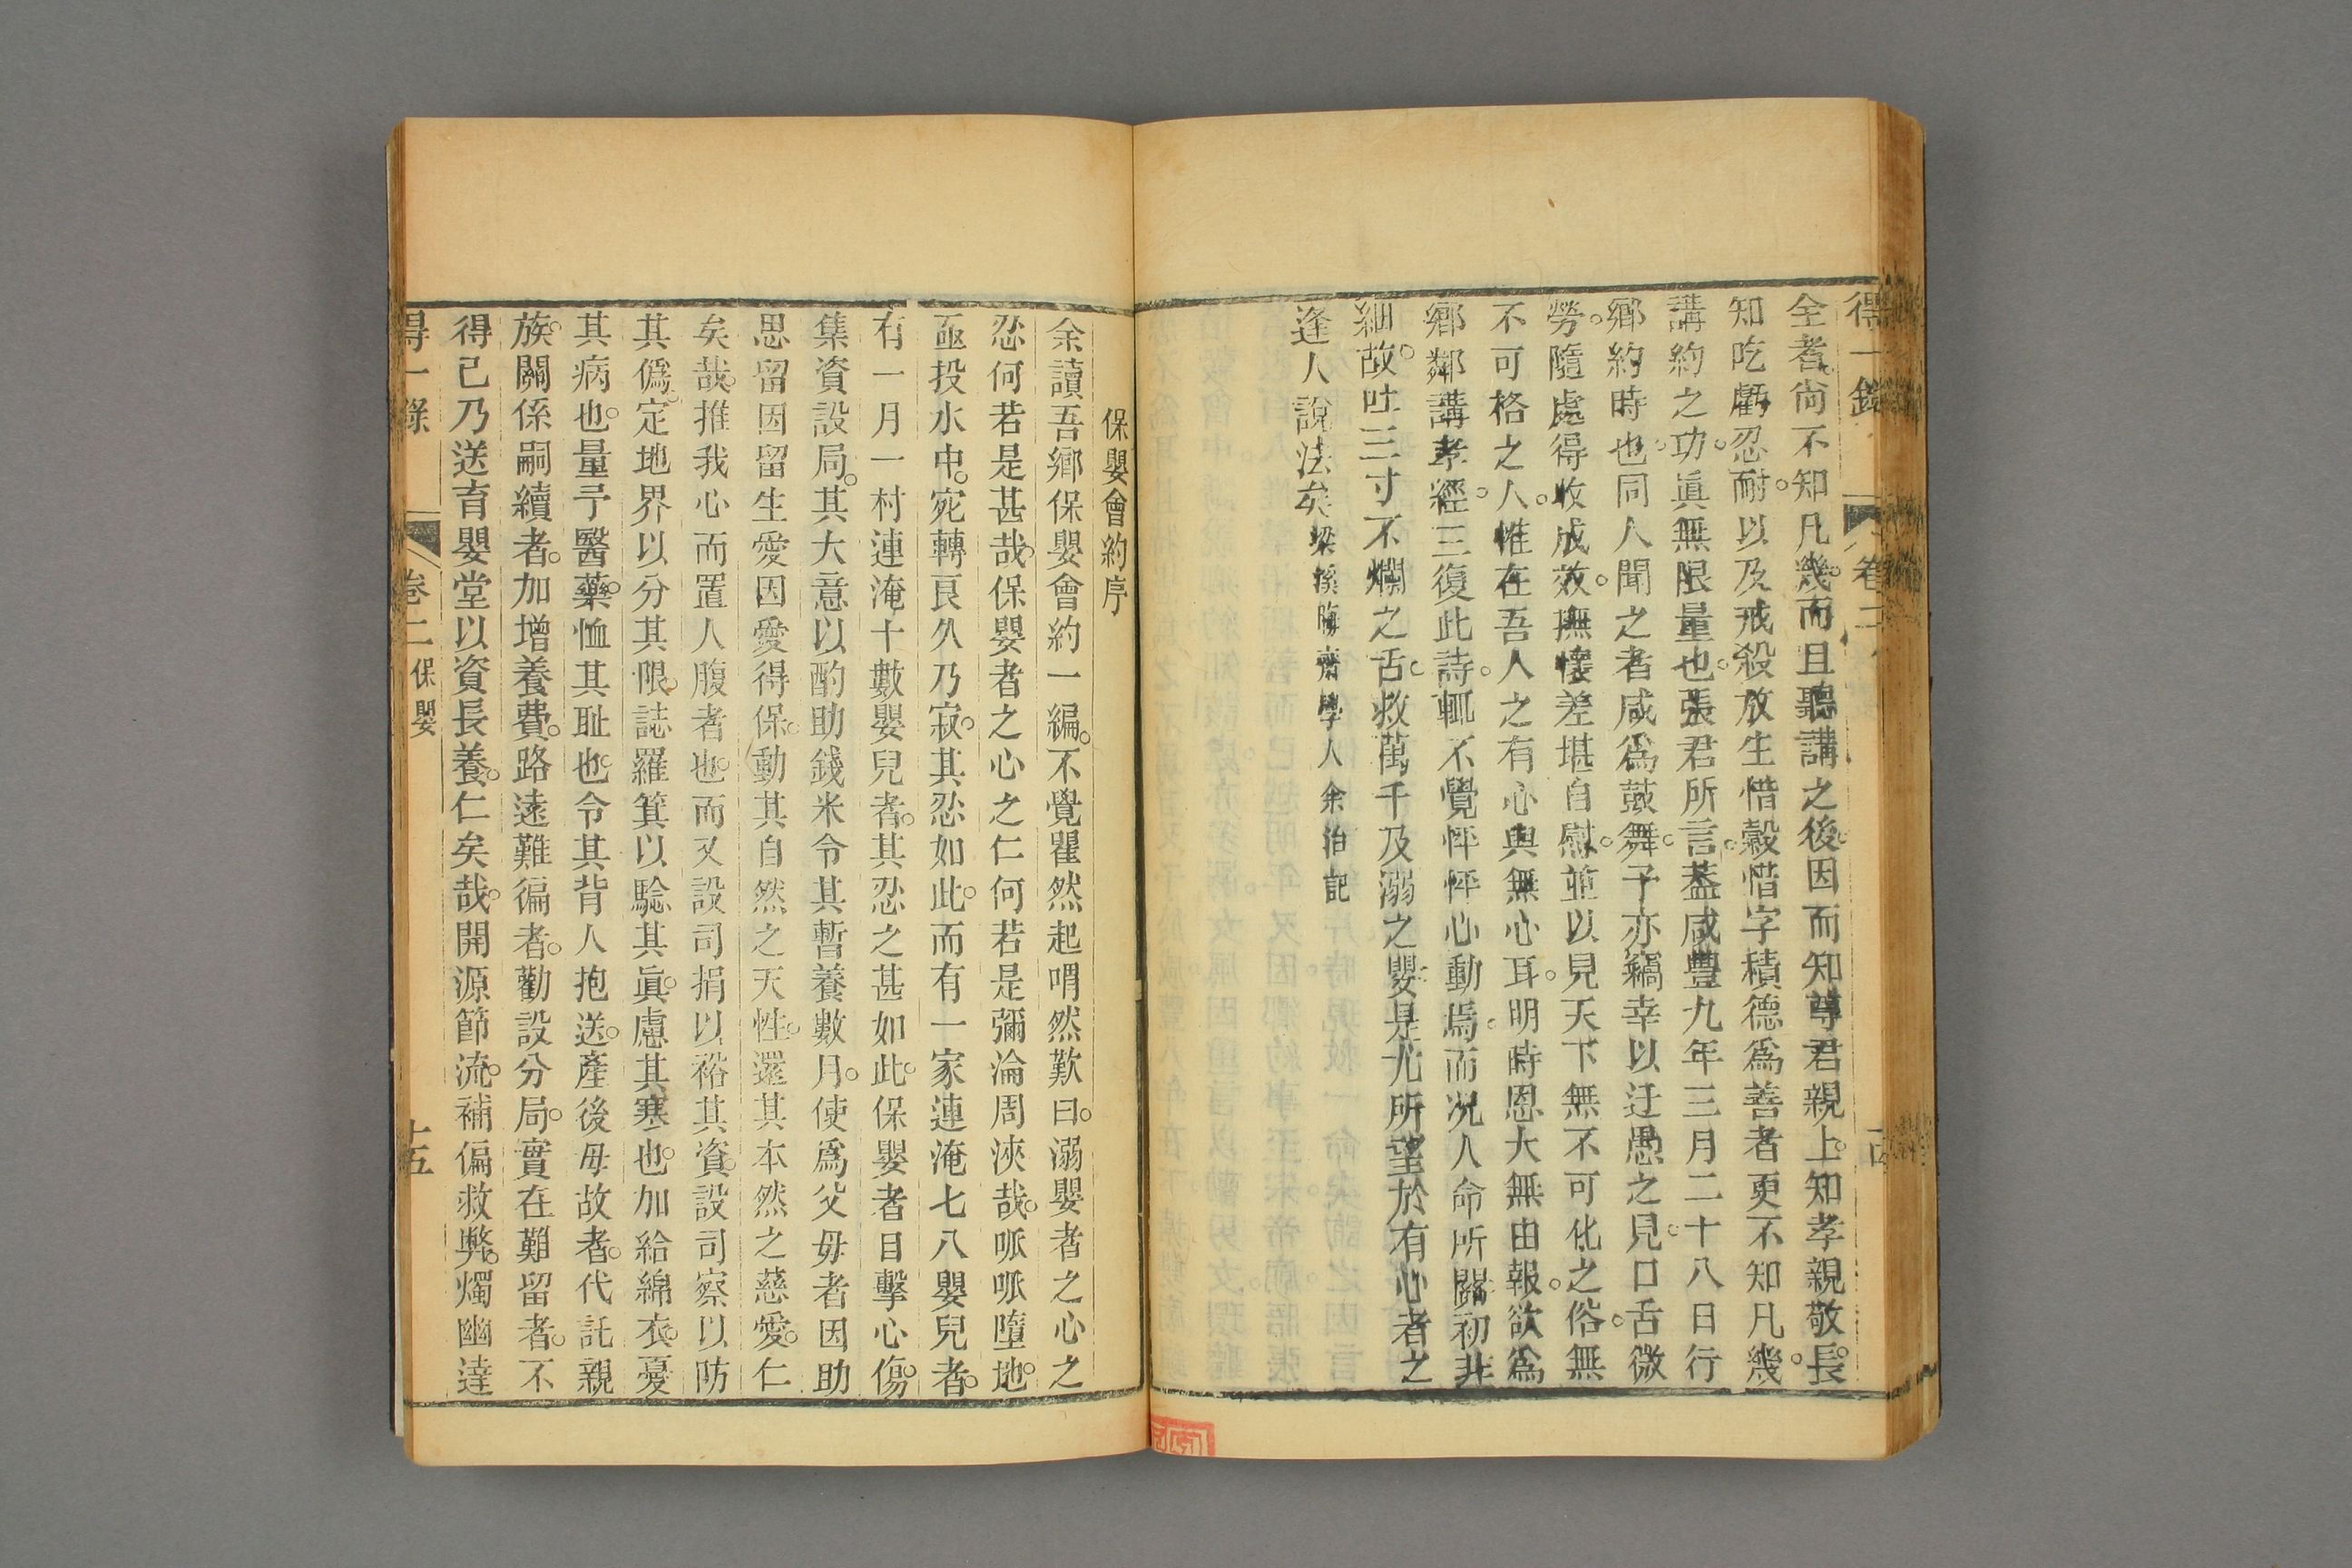 得一錄
卷二
全者尙不知凡幾。而且聽講之後。因而知尊君親上。知孝親敬長。
知吃虧忍耐。以及戒殺放生惜穀惜字積德爲善者。更不知凡幾。
講約之功。眞無限量也。張君所言。葢咸豐九年三月二十八日行
鄉約時也。同人聞之者。咸爲鼓舞。予亦竊幸以迂愚之見。口舌微
勞。隨處得收成效。撫懷差堪自慰。並以見天下無不可化之俗。無
不可格之人。惟在吾人之有心與無心耳。明時恩大無由報。欲爲
鄉鄰講孝經。三復此詩。輒不覺怦怦心動焉。而况人命所關。初非
細故。吐三寸不爛之舌。救萬千及溺之嬰。是尤所望於有心者之
逢人說法矣梁溪晦齋學人余治記
保嬰會約序
余讀吾鄉保嬰會約一編。不覺瞿然起。喟然歎曰。溺嬰者之心之
忍。何若是甚哉。保嬰者之心之仁。何若是彌淪周浹哉。呱呱墮地。
亟投水中。宛轉良久乃寂。其忍如此。而有一家連淹七八嬰兒者。
有一月一村連淹十數嬰兒者。其忍之甚如此。保嬰者目擊心傷。
集資設局。其大意以酌助錢米。令其暫養數月。使爲父毋者因助
思留。因留生愛。因愛得保。動其自然之天性。還其本然之慈愛。仁
矣哉。推我心而置人腹者也。而又設司捐以裕其資。設司察以防
其僞。定地界以分其限。誌羅箕以騐其眞。慮其寒也。加給綿衣。憂
其病也。量予醫藥。恤其耻也。令其背人抱送。產後毋故者。代託親
族。關係嗣續者。加增養費。路遠難徧者。勸設分局。實在難留者。不
得已乃送育嬰堂以資長養。仁矣哉。開源節流。補偏救弊。燭幽達
得一錄
卷二
保嬰
十五